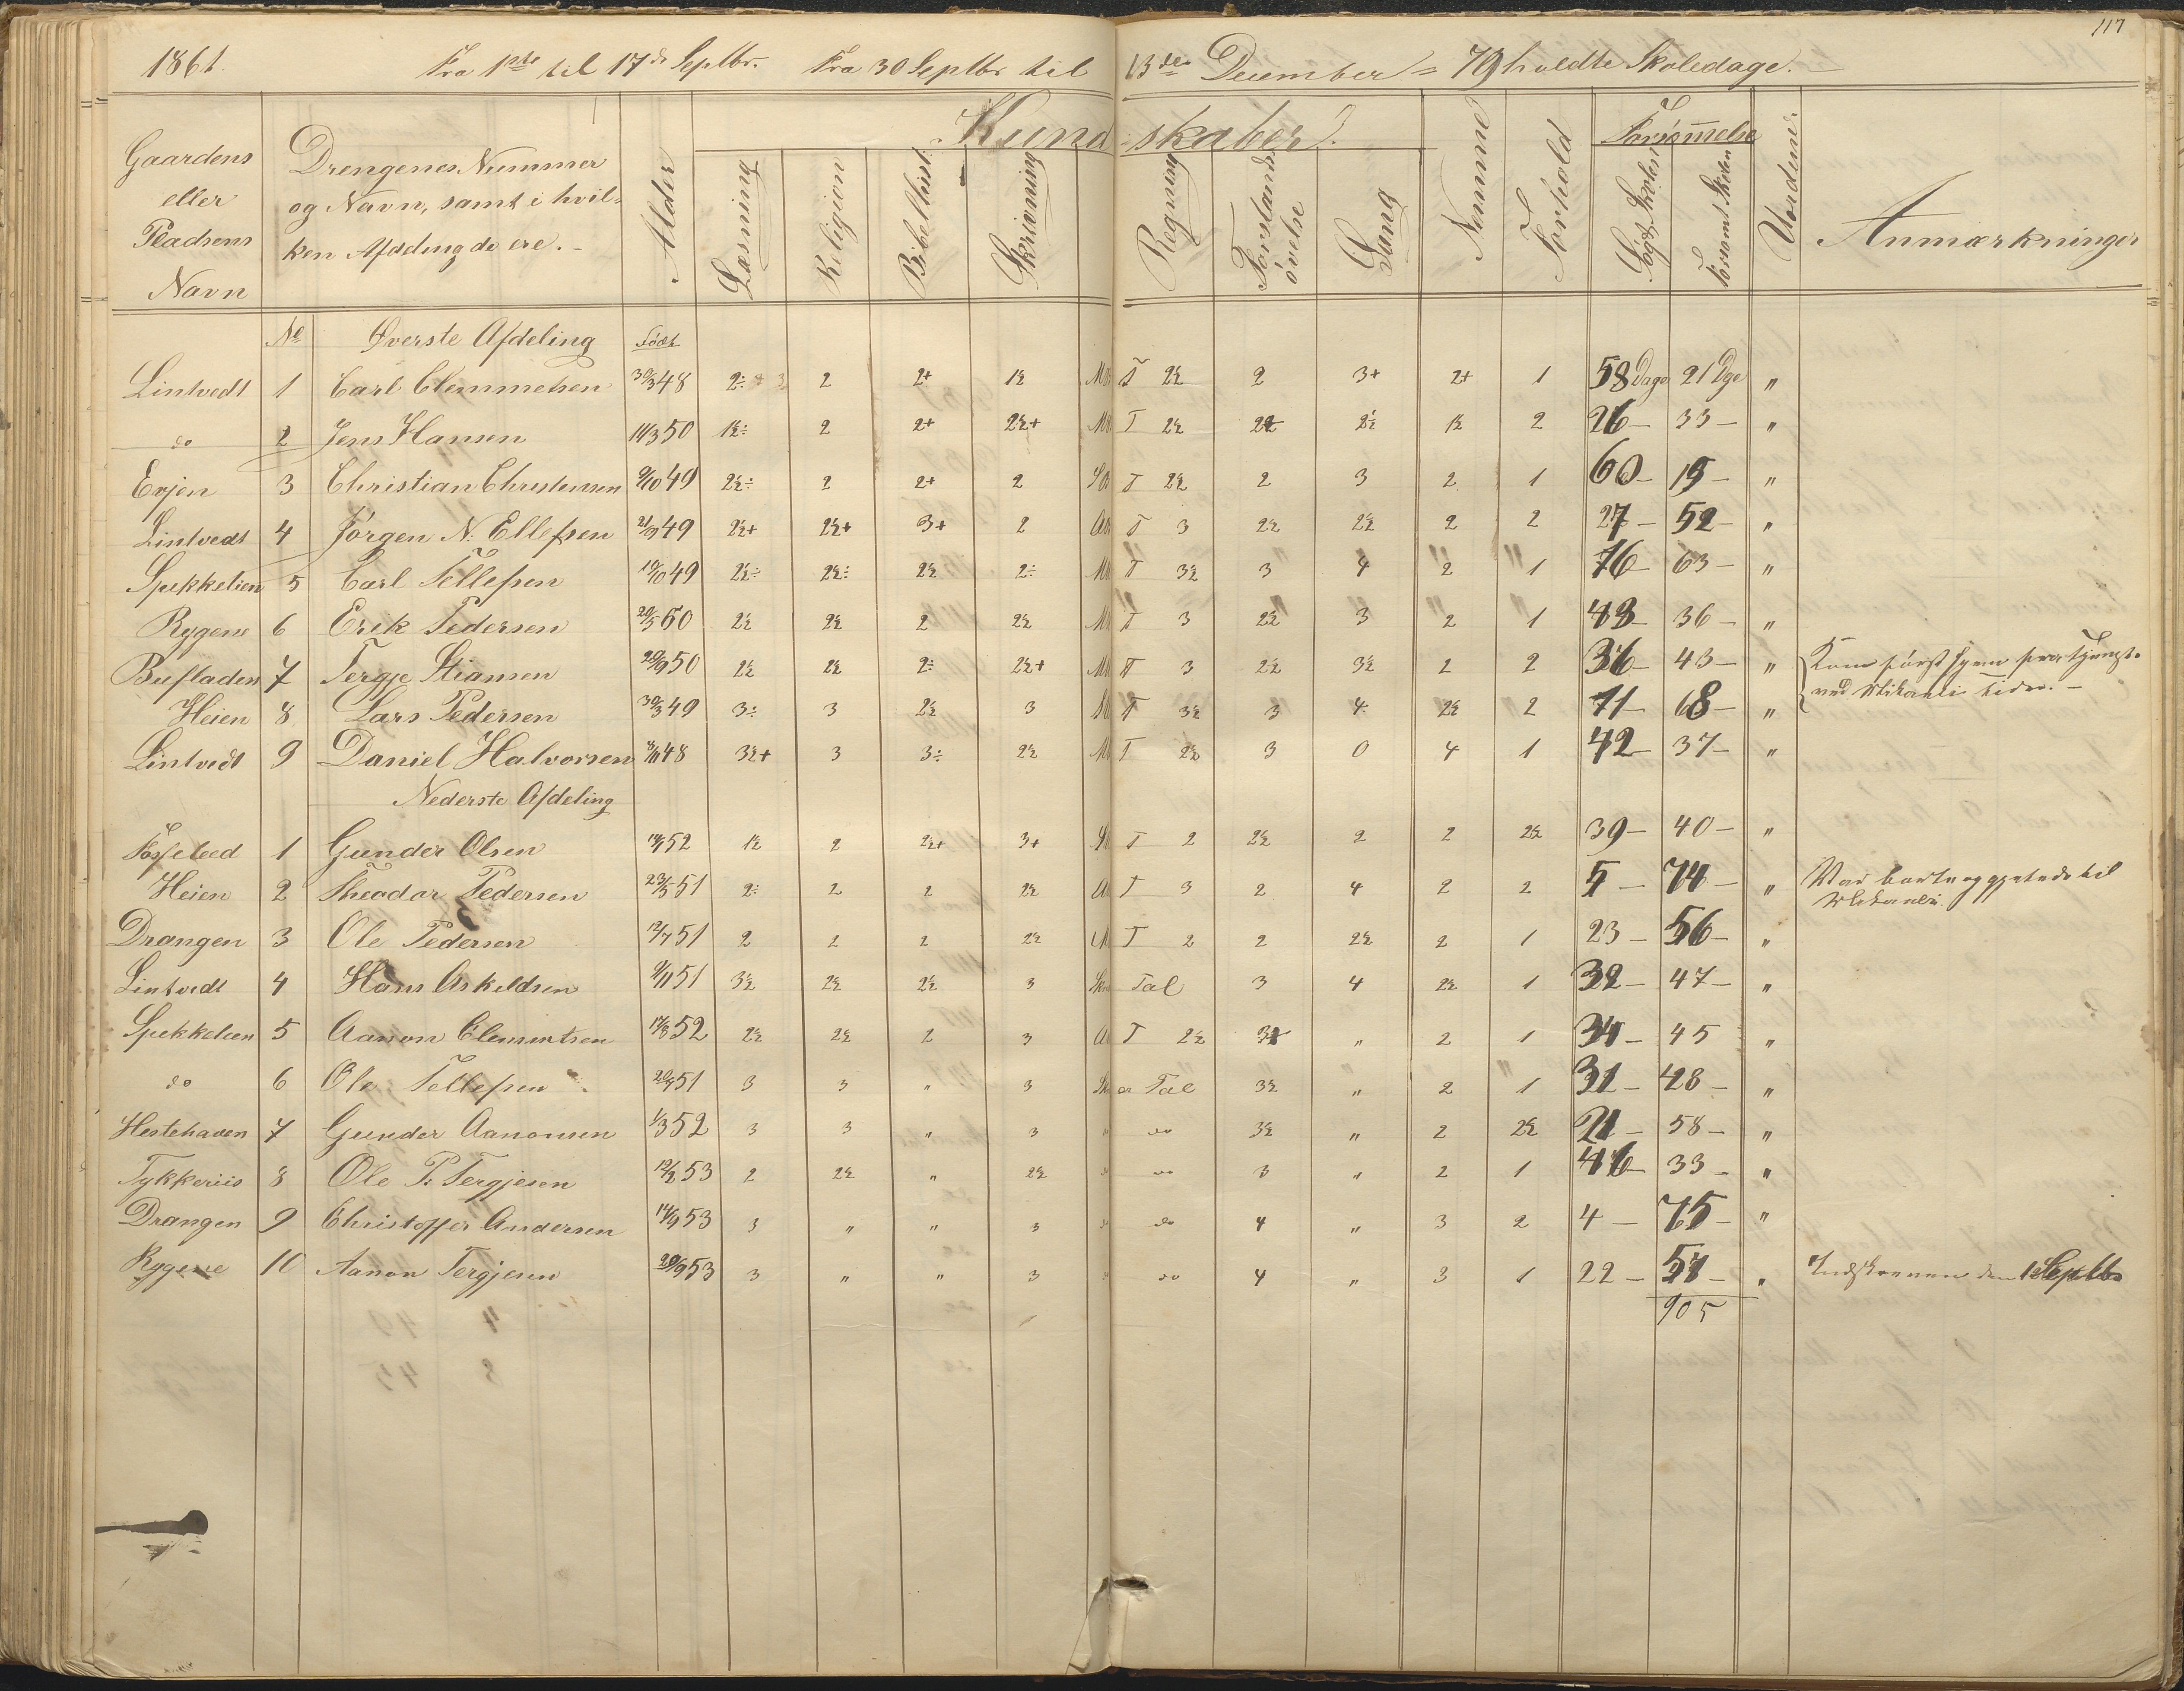 117
1861. Fra 1ste til 17de Septbr. Fra 30 Septbr til 13de December = 79 holdte Skoledage.
Gaardens eller Pladsens Navn | Drengenes Nummer og Navn, samt i hvilken Afdeling de ere. | Alder | Kundskaber. | Læsning | Religion | Bibelhist. | Skrivning | Regning | Forstands øvelse | Sang | Nemme | Forhold | Forsømmelse | Søgt Skolen | Forsømt Skolen | Vurdner. | Anmærkninger
No Øverste Afdeling Födt
Lintvedt 1 Carl Clemmetsen 30/3 48 2÷ 2 2+ 1½ T 2½ 2 3+ 2+ 1 58 Dage 21 Dge "
do 2 Jens Hansen 11/3 50 1½÷ 2 2+ 2½+ T 2½ 2½ 2½ 1½ 2 26 - 33 - "
Evjen 3 Christian Christensen 9/10 49 2½÷ 2 2+ 2 T 2½ 2 3 2 1 60 - 19 - "
Lintvedt 4 Jörgen N. Ellefsen 21/9 49 2½+ 2½+ 3+ 2 T 3 2½ 2½ 2 2 27 - 52 - "
Spekkelien 5 Carl Tellefsen 10/10 49 2½÷ 2½÷ 2½ 2÷ T 3½ 3 4 2 1 16 - 63 - "
Rygene 6 Erik Pedersen 20/5 50 2½ 2½ 2 2½ T 3 2½ 3 2 1 43 - 36 - "
Bufladen 7 Tergje Stiansen 20/9 50 2½ 2½ 2÷ 2½+ T 3 2½ 3½ 2 2 36 - 43 - " Kom først hjem fra Tjenest.
ved Mikaeli Tider. -
Heien 8 Lars Pedersen 30/3 49 3÷ 3 2½ 3 T 3½ 3 4 2½ 2 11 - 68 - "
Lintvedt 9 Daniel Halvorsen 8/11 48 3½+ 3 3÷ 2½ T 2½ 3 0 4 1 42 - 37 - "
Nederste Afdeling
Fosseleed 1 Gunder Olsen 52 1½ 2 2½+ 3+ T 2 2½ 2 2 2½ 39 - 40 - "
Heien 2 Theodor Pedersen 23/5 51 2÷ 2 2 2½ T 3 2 4 2 2 5 - 74 - " Var borte og gjætede til
Mikaeli.
Drangen 3 Ole Pedersen 12/7 51 2 2 2 2½ T 2 2 2½ 2 1 23 - 56 - "
Lintvedt 4 Hans Askeldsen 9/11 51 3½ 2½ 2½ 3 Tal 3 4 2½ 1 32 - 47 - "
Spekkelien 5 Aanon Clemmetsen 17/3 52 2½ 2½ 2 3 T 2½ 3½ " 2 1 34 - 45 "
do 6 Ole Tellefsen 51 3 3 " 3 Tal 3½ " 2 1 31 - 48 - "
Hestehaven 7 Gunder Aanonsen 1/3 52 3 3 " 3 do 3½ " 2 2½ 21 - 58 - "
Tykkeriis 8 Ole P. Tergjesen 12/2 53 2 2½ " 2½ do 3 " 2 1 46 - 33 - "
Drangen 9 Christoffer Andersen 14/9 53 3 " " 3 do 4 " 3 2 4 - 75 - "
Rygene 10 Aanon Tergjesen 20/9 53 3 " " 3 do 4 " 3 1 22 - 57 - " Indskreven den 1 Septbr
905